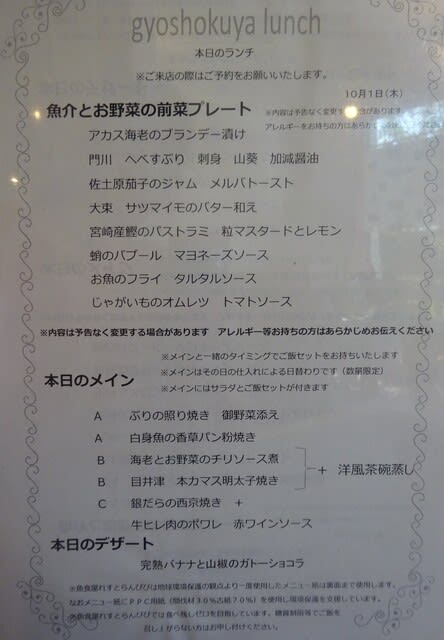 gyoshokuya lunch
本日のランチ
※ご来店の際はご予約をお願いいたします。
10月1日(木)
魚介とお野菜の前菜プレート
※内容は予告なく変更する場合があります
アレルギーをお持ちの方はあらかじめ
アカス海老のブランデー漬け
門川 へべすぶり 刺身 山葵 加減醤油
佐土原茄子のジャム メルバトースト
大束 サツマイモのバター和え
宮崎産鰹のパストラミ 粒マスタードとレモン
蛸のバプール マヨネーズソース
お魚のフライ タルタルソース
じゃがいものオムレツ トマトソース
※内容は予告なく変更する場合があります アレルギー等お持ちの方はあらかじめお伝えください
※メインと一緒のタイミングでご飯セットをお持ちいたします
※メインはその日の仕入れによる日替わりです(数量限定)
※メインにはサラダとご飯セットが付きます
本日のメイン
A ぶりの照り焼き 御野菜添え
A 白身魚の香草パン粉焼き
B 海老とお野菜のチリソース煮
B 目井津 本カマス明太子焼き
+ 洋風茶碗蒸し
C 銀だらの西京焼き +
牛ヒレ肉のポワレ 赤ワインソース
本日のデザート
完熟バナナと山椒のガトーショコラ
※魚食屋れすとらんびびは地球環境保護の観点より一度使用したメニュー紙は裏面まで使用します。
なおメニュー紙にPPC用紙(間伐材30%古紙70%)を使用し環境保護を支援しています。
※魚食屋れすとらんびびでは食べ残しゼロを目指しています。糖質制限等でご飯を
召し上がらない方はお申し付けください。